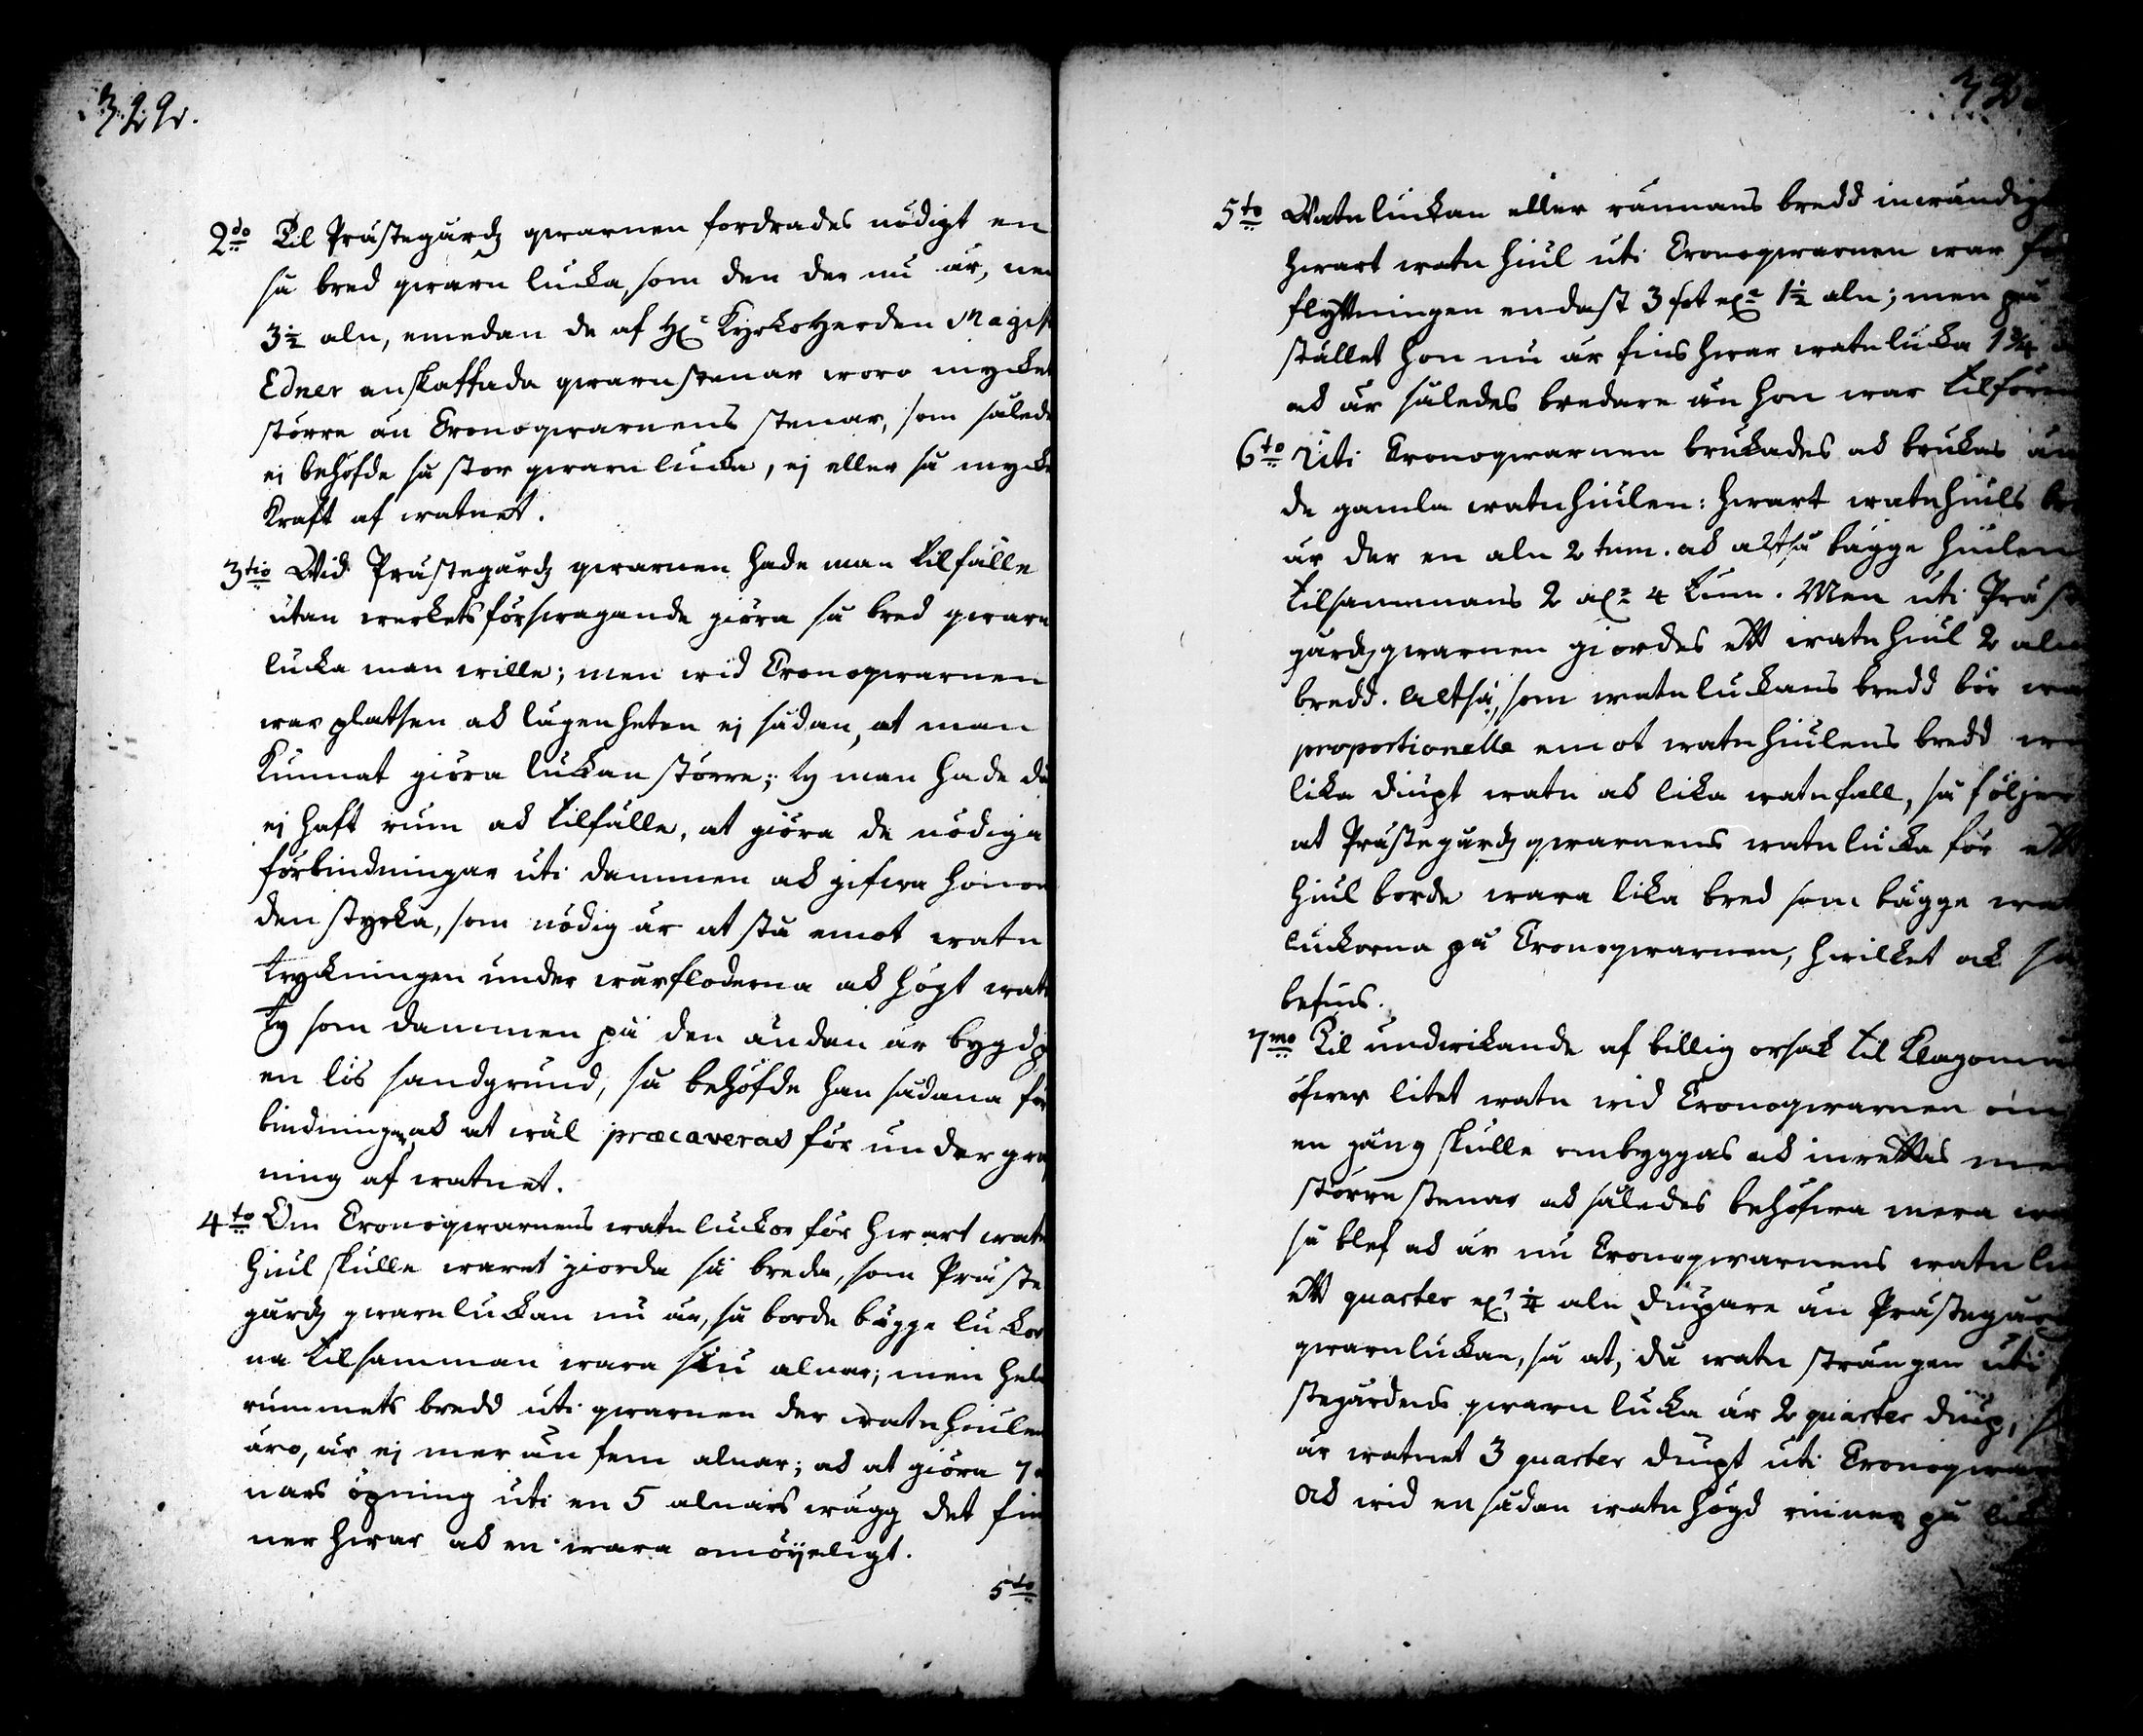 322.
2do Til Prästegårdz qwarnen fordrades nödigt en
så bred qwarn lucka, som den der nu är, neml
3½ aln, emedan de af Hr Kyrkoherden Magist
Edner anskaffada qwarnstenar woro mycket
större än Cronoqwarnens stenar, som således
ej behöfde så stor qwarn lucka, ej eller så mycke
Kraft af watnet.
3tio Wid Prästegårdz qwarnen hade man tilfälle
utan werkets förswagande giöra så bred qwarn
lucka man wille; men wid Cronoqwarnen
war platsen ock lägenheten ej sådan, at man
kunnat giöra luckan större; ty man hade då
ej haft rum ock tilfälle, at giöra de nödiga
förbindningar uti dammen ock gifwa honom
den styrka, som nödig är at stå emot watn
tryckningen under wårfloderna ock högt watn
ty som dammen på den ändan är bygd på
en lös sandgrund, så behöfde han sådana för
bindningar, ock at wäl præcaveras för undergräf
ning af watnet.
4to Om Cronoqwarnens watn luckor för hwart watn
hiul skulle warit giorda så breda, som Präste
gårdz qwarnluckan nu är, så borde bägge luckor
na tilsamman wara siu alnar; men hela
rummets bredd uti qwarnen der watnhiulen
äro, är ej mer än fem alnar; ock at giöra 7 al
nars öpning uti en 5 alnars wägg det fin
ner hwar ock en wara omöyeligt.
5to
5to Watnluckan eller rännans bredd inwändigt
hwart watn hiul uti Cronoqwarnen war för
flyttningen endast 3 fot elr 1½ aln; men på
stället hon nu är fins hwar watnlucka 1¾
ock är således bredare än hon war tilförne
6to Uti Cronoqwarnen brukades ock brukas än
de gamla watnhiulen: hwart watnhiuls bredd
är der en aln 2 tum. ock altså bägge hiulen
tilsammans 2 alr 4 tum. Men uti Präste
gårdzqwarnen giordes ett watn hiul 2 aln
bredd. Altså, som watnluckans bredd bör wara
proportionelle emot watnhiulens bredd
lika diupt watn ock lika watnfall, så följer
at Prästegårdz qwarnens watnlucka för ett
hiul borde wara lika bred som bägge watn
luckorna på Cronoqwarnen, hwilket ock så
befins.
7mo Til undwikande af billig orsak til klagomål
öfwer litet watn wid Cronoqwarnen om
en gång skulle ombyggas ock inrettas med
större stenar ock således behöfwa mera
så blef ock är nu Cronoqwarnens watn lucka
ett quarter elr ¼ aln diupare än Prästegårdz
qwarnluckan, så at, då watn strängen uti
stegårdens qwarn lucka är 2 quarter diup, så
är watnet 3 quarter diupt uti Cronoqwarn
Ock wid en sådan watn högd rinner på lika